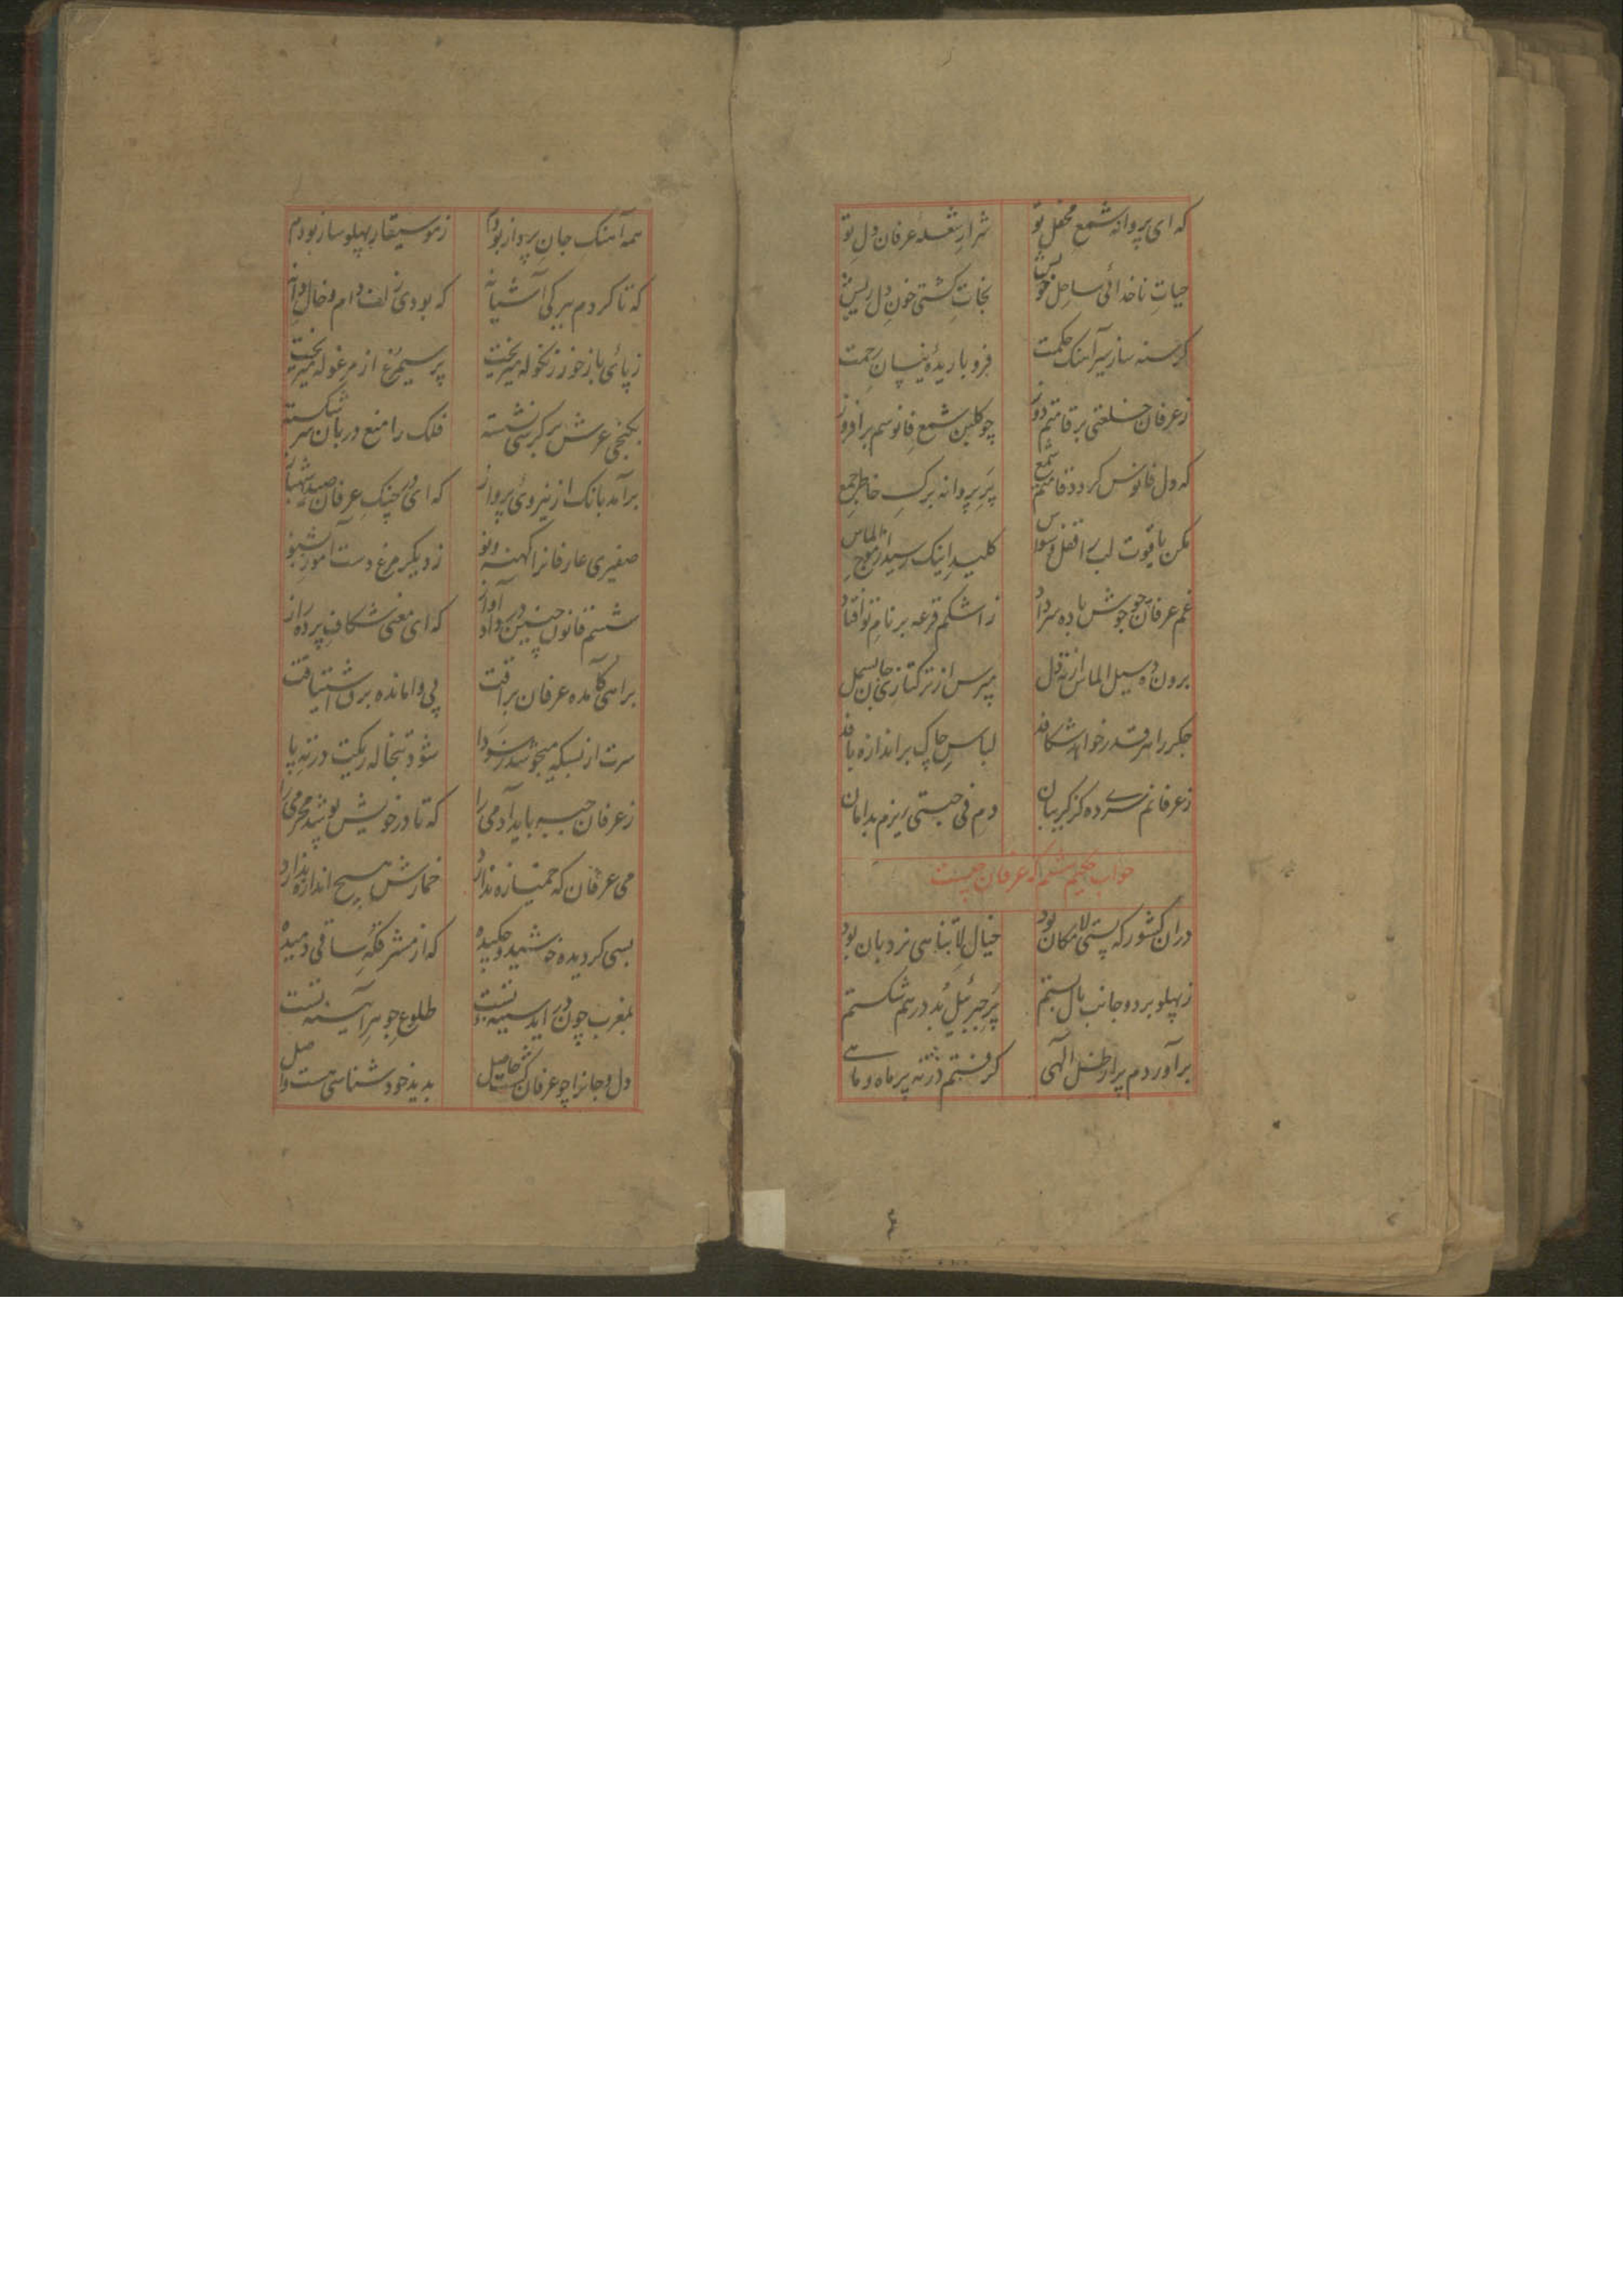 که ای پروانه شمع محفل تو شرار شعلهٔ عرفان دل تو
حیات ناخدائی ساحل خویش نجات کشتی خون دل ریش
کرسنه ساز سیر آهنک حکمت فرو باریدهٔ نیسان رحمت
ز عرفان خلعتی بر قامتم دوز چو کلبن شمع فانوسم برافروز
که دل فانوس کردد قامتم شمع پر پروانه برک خاطر جمع
مکن یاقوت لب را قفل وسواس کلید اینک رسید از موج الماس
غم عرفان چو جوش باده سر داد ز اشکم قرعه بر نام تو افتاد
برون ده سیل الماس از ته دل مپرس از ترکتازی جان بسمل
جکر را هر قدر خواهد شکافد لباس چاک بر اندازه بافد
ز عرفانم سرده کز کریبان دم فی جستی ریزم بدامان
جواب حکیم ششم که عرفان چیست
در ان کشور که پستی لامکان بود خیال لاتناهی نردبان بود
ز پهلو بر دو جانب بال بستم پر جبرئیل بد در هم شکستم
برآوردم پر از ظل الهی کرفتم در ته پر ماه و ماهی
همه آهنک جان پرواز بودم ز موسیقار پهلو ساز بودم
که تا کردم بر کی آشیانه که بودی زلف دام و خال دانه
ز پائی باز خور زنکوله میریخت پر سیمرغ از مرغوله میریخت
بکنجی عرش بر کرسی نشسته فلک را منع دربان سر شکسته
برآمد بانک از نیروئی پرواز که ای در چنک عرفان صید شهباز
صفیری عارفانرا کهنه و نو ز دیکر مرغ دست آموز بشنو
شنیدم قانون چنین در داد آواز که ای مغنی شکاف پرده راز
براهی کآمده عرفان براقت پی وامانده برق اشتیاقت
سرت از بسکه میجوشد ز سودا شود تبخاله ریکیت در ته پا
ز عرفان جبه باید آدمی را که تا در خویش پوشد محرمی را
می عرفان که خمیازه ندارد خمارش هیچ اندازه ندارد
بسی کردیده خورشید و چکیده که از مشرق که ساقی دمیده
بمغرب چون در آید سینه تست طلوع جوهر آیینه تست
دل و جانرا چو عرفان کشت حاصل بدید خود شناسی هست واصل